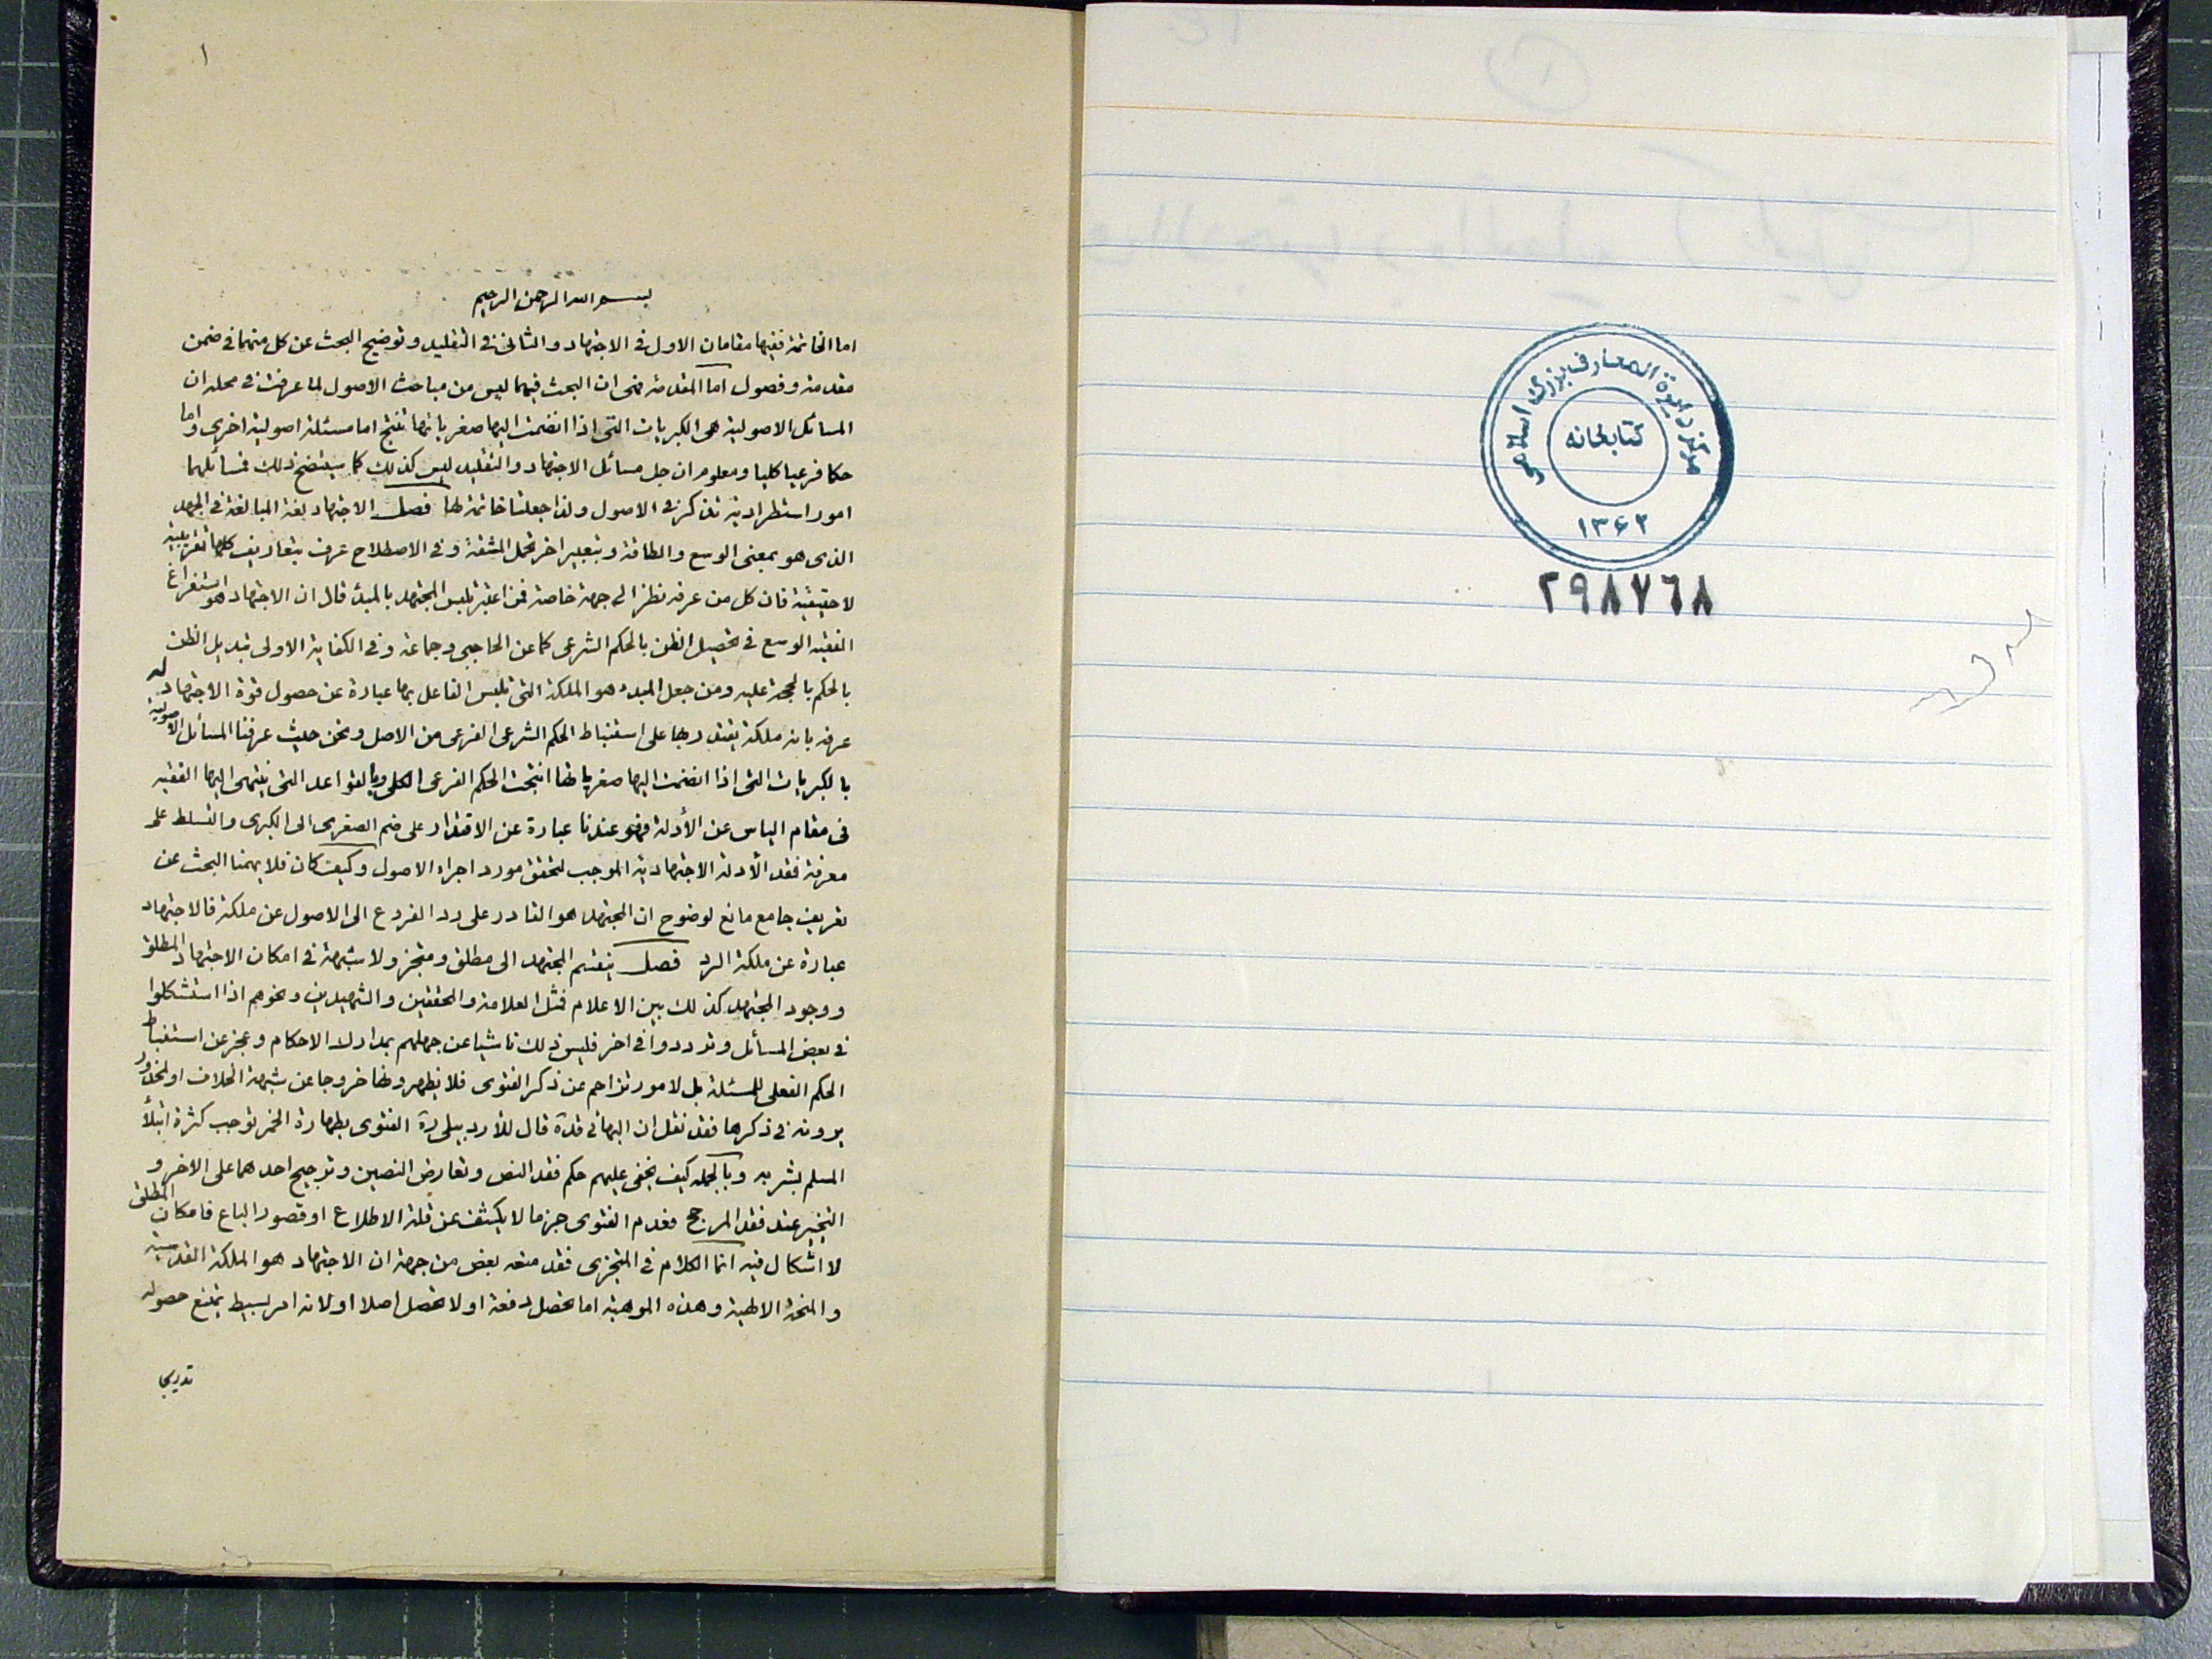 مركز دائرة المعارف بزرگ اسلامى
كتابخانه
١٣۶٢
٢٩٨٧٦٨
١
بسم الله الرحمن الرحيم
اما الخاتمة ففيها مقامان الاول فى الاجتهاد والثانى فى التقليد وتوضيح البحث عن كل منهما فى ضمن
مقدمة وفصول اما المقدمة فهى ان البحث فيهما ليس من مباحث الاصول لما عرفت فى محله ان
المسائل الاصولية هى الكبريات التى اذا انضمت اليها صغرياتها تنتج اما مسئلة اصولية اخرى واما
حكما فرعيا كليا ومعلوم ان جل مسائل الاجتهاد والتقليد ليس كذلك كما سيتضح ذلك فمسائلهما
امور استطرادية تذكر فى الاصول ولذا جعلت خاتمة لها فصل الاجتهاد لغة المبالغة فى الجهد
الذى هو بمعنى الوسع والطاقة وبتعبير اخر تحمل المشقة وفى الاصطلاح عرف بتعاريف كلها تقريبية
لا حقيقية فان كل من عرفه نظر الى جهة خاصة فمن اعتبر تلبس المجتهد بالمبدء قال ان الاجتهاد هو استفراغ
الفقيه الوسع فى تحصيل الظن بالحكم الشرعى كما عن الحاجبى وجماعة وفى الكفاية الاولى تبديل الظن
بالحكم بالحجة عليه ومن جعل المبدء هو الملكة التى تلبس الفاعل بها عبارة عن حصول قوة الاجتهاد له
عرفه بانه ملكة يقتدر بها على استنباط الحكم الشرعى الفرعى من الاصل ونحن حيث عرفنا المسائل الاصولية
بالكبريات التى اذا انضمت اليها صغرياتها انتجت الحكم الفرعى الكلى وبالقواعد التى ينتهى اليها الفقيه
فى مقام الياس عن الأدلة فهو عندنا عبارة عن الاقتدار على ضم الصغرى الى الكبرى والتسلط على
معرفة فقد الأدلة الاجتهادية الموجب لتحقق مورد اجراء الاصول وكيف كان فلا يهمنا البحث عن
تعريف جامع مانع لوضوح ان المجتهد هو القادر على رد الفروع الى الاصول عن ملكة فالاجتهاد
عبارة عن ملكة الرد فصل ينقسم المجتهد الى مطلق ومتجز ولا شبهة فى امكان الاجتهاد المطلق
ووجود المجتهد كذلك بين الاعلام فمثل العلامة والمحققين والشهيدين ونحوهم اذا استشكلوا
فى بعض المسائل وترددوا فى اخر فليس ذلك ناشيا عن جهلهم بمدارك الاحكام وعجز عن استنباط
الحكم الفعلى للمسئلة بل لامور تزاحم عن ذكر الفتوى فلا يظهرونها خروجا عن شبهة الخلاف او لمحذور
يرونه فى ذكرها فقد نقل ان البهائى قده قال للأردبيلى ره الفتوى بطهارة الخمر توجب كثرة ابتلأ
المسلم بشربه وبالجمله كيف يخفى عليهم حكم فقد النص وتعارض النصين وترجيح احدهما على الاخر و
التخيير عند فقد المرجح فعدم الفتوى جزما لا يكشف عن قلة الاطلاع او قصور الباع فامكان المطلق
لا اشكال فيه انما الكلام فى المتجزى فقد منعه بعض من جهة ان الاجتهاد هو الملكة القدسية
والمنحة الالهية وهذه الموهبة اما تحصل دفعة او لا تحصل اصلا او لانه امر بسيط يمتنع حصوله
تدريجا